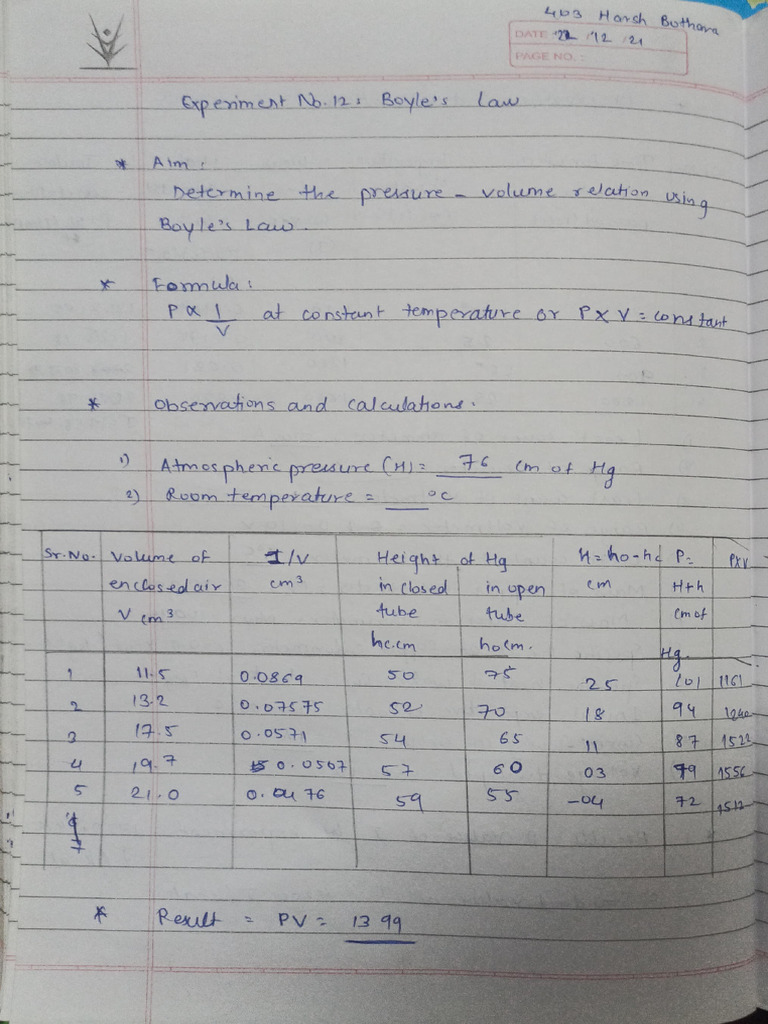 403 Harsh Bothara
DATE 22 / 12 / 21
PAGE NO. :
Experiment No. 12: Boyle's Law
* Aim :
Determine the pressure - volume relation using
Boyle's Law.
* Formula :
P ∝ 1/V at constant temperature or P X V = constant
* Observations and calculations.
1) Atmospheric pressure (H) = 76 cm of Hg
2) Room temperature = __ °c
Sr. No. Volume of 1/V Height of Hg H = ho - hc P = PXV
enclosed air cm³ in closed in open cm H+h
V cm³ tube tube cm of
hc.cm ho cm. Hg.
1 11.5 0.0869 50 75 25 101 1161
2 13.2 0.07575 52 70 18 94 1240
3 17.5 0.0571 54 65 11 87 1522
4 19.7 0.0507 57 60 03 79 1556
5 21.0 0.0476 59 55 -04 72 1512
7
* Result = PV = 1399